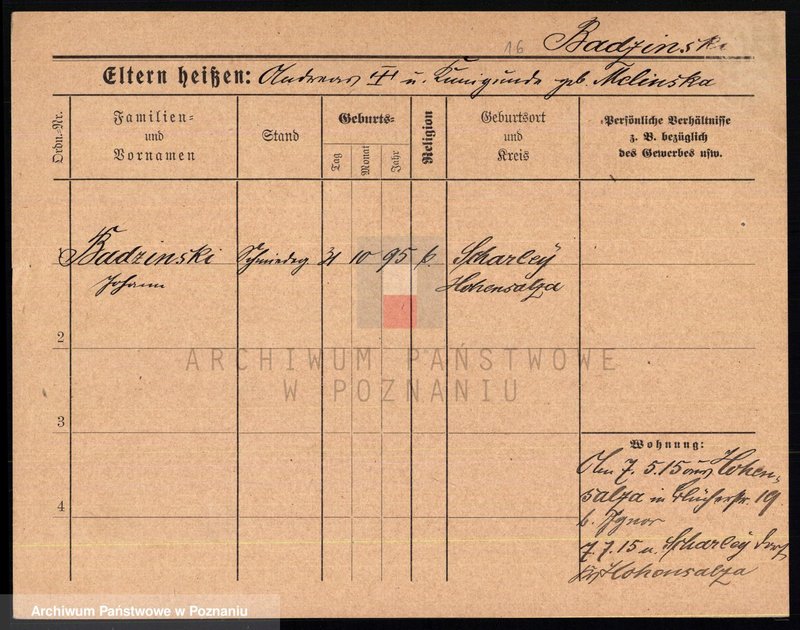 16
Badzinski
Eltern heißen: Andreas u. Kunigunde geb. Melinska
Ordn.-Nr.
Familien- und Vornamen
Stand
Geburts-
Tag
Monat
Jahr
Religion
Geburtsort und Kreis
Persönliche Verhältnisse
z. B. bezüglich
des Gewerbes usw.
1 Badzinski Schmiedeg 31 10 95 k. Scharley
Johann Hohensalza
2
3
4
Wohnung:
Am 7. 5.15 aus Hohen-
salza in Blücherstr. 19
b.
7 7.15 n. Scharley Dorf
Hohensalza
ARCHIWUM PAŃSTWOWE
W POZNANIU
Archiwum Państwowe w Poznaniu